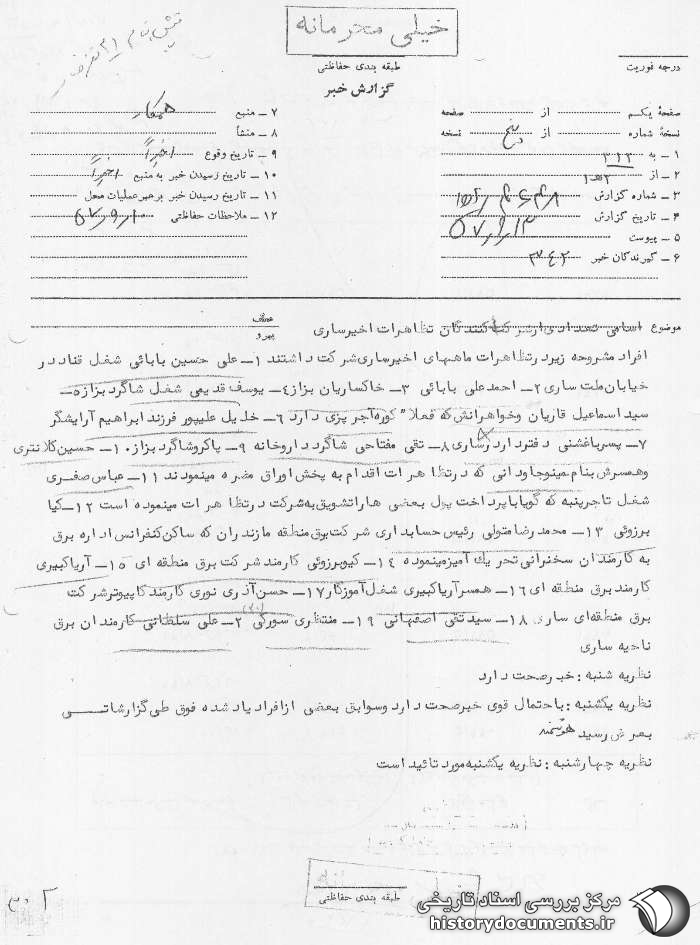 خیلی محرمانه
طبقه بندی حفاظتی
درجه فوریت
گزارش خبر
صفحهٔ یکم از صفحه
نسخهٔ شماره از پنج نسخه
۱ ـ به ۳۱۲
۲ ـ از ۲ﻫ۱
۳ ـ شماره گزارش
۴ ـ تاریخ گزارش ۵۷/۹/۱۳
۵ ـ پیوست
۶ ـ گیرندگان خبر
۷ ـ منبع همکار
۸ ـ منشأ
۹ ـ تاریخ وقوع اخیراً
۱۰ ـ تاریخ رسیدن خبر به منبع اخیراً
۱۱ ـ تاریخ رسیدن خبر برهبر عملیات محل
۱۲ ـ ملاحظات حفاظتی
موضوع اسامی تعدادی از شرکت کنندگان تظاهرات اخیرساری
عطف
پیرو
افراد مشروحه زیر در تظاهرات ماههای اخیر ساری شرکت داشتند ۱ـ علی حسین بابائی شغل قناد در
خیابان ملت ساری ۲ـ احمدعلی بابائی ۳ـ خاکساریان بزاز ۴ـ یوسف قدیمی شغل شاگرد بزاز ۵ـ
سید اسماعیل قاریان وخواهرانش که فعلا" کوره آجرپزی دارد ۶ـ خلیل علیپور فرزند ابراهیم آرایشگر
۷ـ پسرباغشنی دفتردار دارساری ۸ـ تقی مفتاحی شاگرد داروخانه ۹ـ پاکروشاگرد بزاز ۱۰ـ حسین کلانتری
وهمسرش بنام مینوجاودانی که درتظاهرات اقدام به پخش اوراق مضره مینمودند ۱۱ـ عباس صفری
شغل تاجرپنبه که گویاباپرداخت پول بعضی هاراتشویق به شرکت درتظاهرات مینموده است ۱۲ـ کیا
برزوئی ۱۳ـ محمدرضا متولی رئیس حسابداری شرکت برق منطقه مازندران که سالن کنفرانس اداره برق
به کارمندان سخنرانی تحریك آمیزمینموده ۱۴ـ کیوبرزوئی کارمند شرکت برق منطقه ای ۱۵ـ آریاکبیری
کارمند برق منطقه ای ۱۶ـ همسرآریاکبیری شغل آموزگار ۱۷ـ حسن آذری نوری کارمند کامپیوترشرکت
برق منطقه‌ای ساری ۱۸ـ سیدتقی اصفهانی ۱۹ـ منتظری سورکی ۲۰ـ علی سلطانی کارمندان برق
ناحیه ساری
نظریه شنبه : خبرصحت دارد
نظریه یکشنبه : باحتمال قوی خبرصحت دارد وسوابق بعضی ازافرادیاد شده فوق طی گزارشاتی
بعرض رسید هوشمند
نظریه چهارشنبه : نظریه یکشنبه مورد تائید است
طبقه بندی حفاظتی
مرکز بررسی اسناد تاریخی
historydocuments.ir